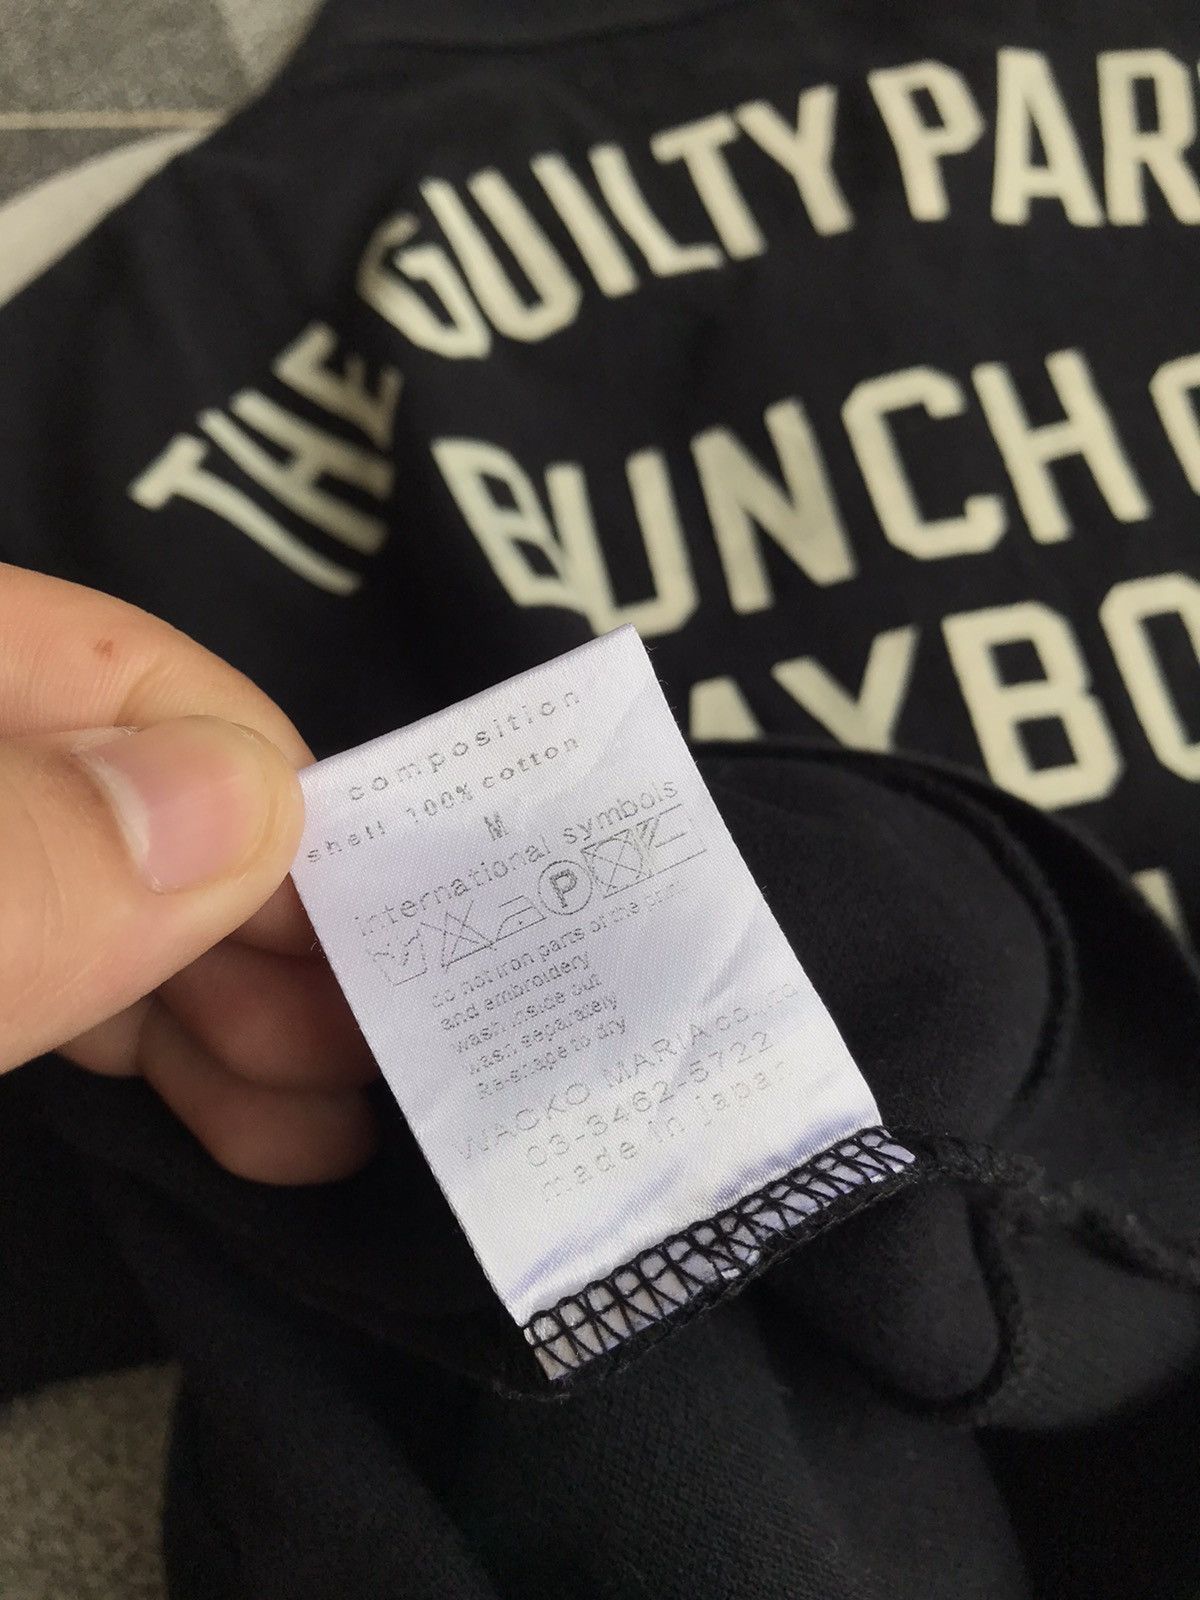 THE GUILTY PAR
BUNCH
AYBO
composition
shell 100% cotton
M
international symbols
P
do not iron parts of the print
and embroidery
wash inside out
wash separately
Re-shape to dry
WACKO MARIA co.,ltd
03-3462-5722
made in japan